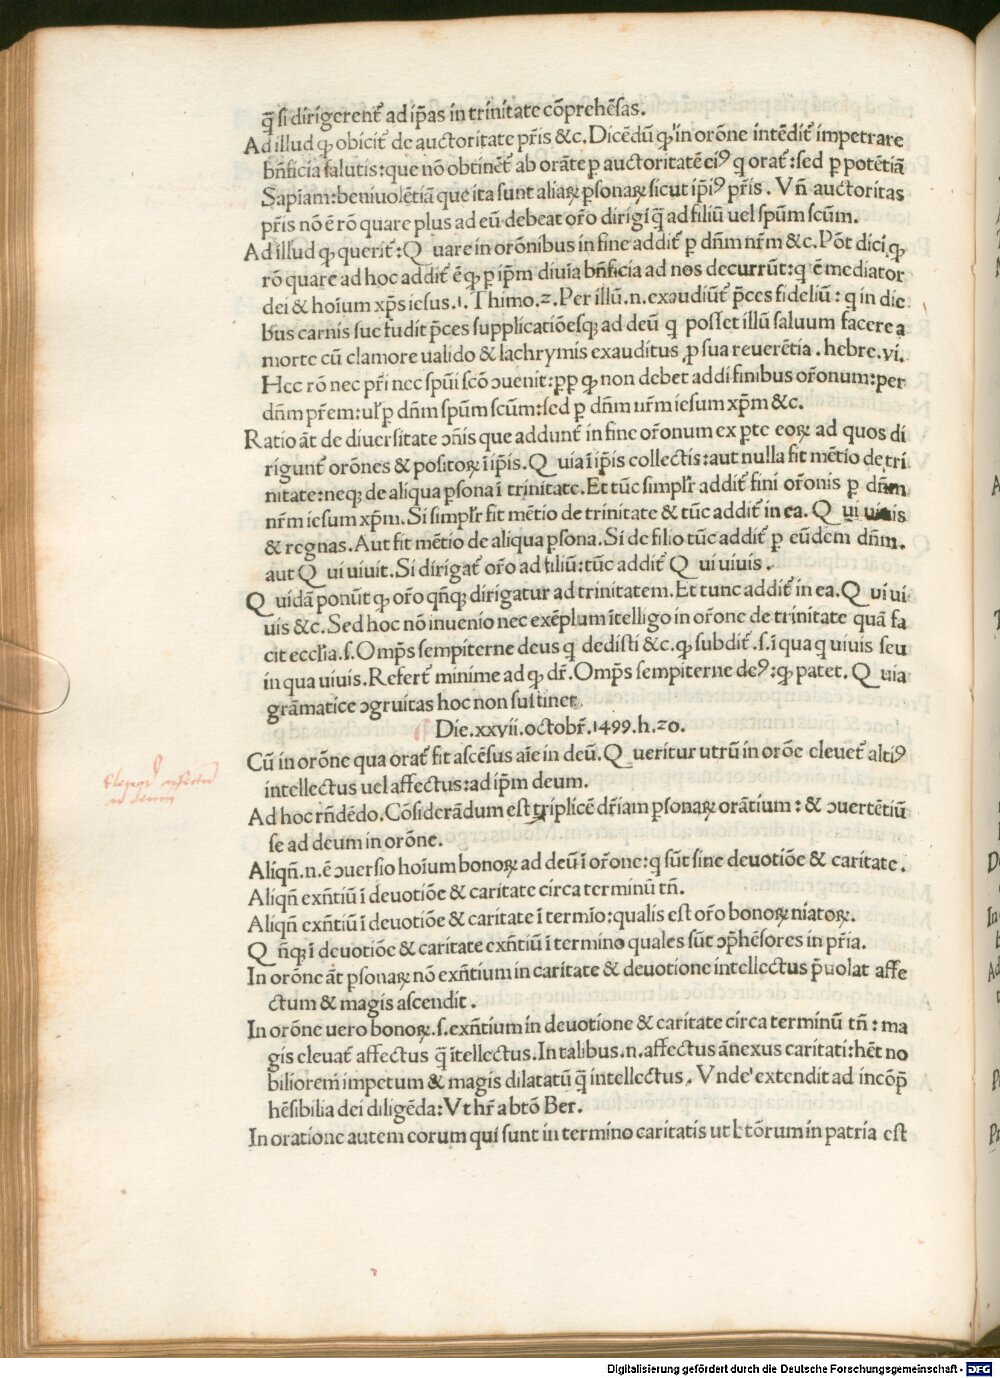 q̃ si dirigerent᷑ ad ip̃as in trinitate cõprehẽsas.
Ad illud ꝙ obicit᷑ de auctoritate p̃ris &c. Dicẽdũ ꝙ in orõne intẽdit᷑ impetrare
bñficia salutis: que nõ obtinẽt᷑ ab orãte p auctoritatẽ eiꝰ q orat᷑: sed p potẽtiã
Sapiam: beniuolẽtiã que ita sunt aliaꝝ psonaꝝ sicut ip̃iꝰ p̃ris. Vñ auctoritas
p̃ris nõ ẽ rõ quare plus ad eũ debeat or̃o dirigi q̃ ad filiũ uel spũm scũm.
Ad illud ꝙ querit᷑: Q uare in orõnibus in fine addit᷑ p dñm nr̃m &c. Põt dici ꝙ
rõ quare ad hoc addit᷑ ẽ ꝙ p ip̃m diuia bñficia ad nos decurrũt: q ẽ mediator
dei & hoĩum xp̃s iesus. 1. Thimo. 2. Per illũ .n. exaudiũt᷑ p̃ces fideliũ: q in die
bus carnis sue fudit p̃ces supplicatiõesꝗ ad deũ q posset illũ saluum facere a
morte cũ clamore ualido & lachrymis exauditus ꝓ sua reuerẽtia. hebre. vi.
Hec rõ nec p̃ri nec spũi scõ ɔuenit: pp ꝙ non debet addi finibus or̃onum: per
dñm p̃rem: ul̃ p dñm spũm scũm: sed p dñm nr̃m iesum xp̃m &c.
Ratio ãt de diuersitate ɔñis que addunt᷑ in fine or̃onum ex pte eoꝝ ad quos di
rigunt᷑ orõnes & positoꝝ ĩ ip̃is. Q uia ĩ ip̃is collectis: aut nulla fit mẽtio de tri
nitate: neqꝫ de aliqua psona ĩ trinitate. Et tũc simpl̃r addit᷑ fini or̃onis p dñm
nr̃m iesum xp̃m. Si simpl̃r fit mẽtio de trinitate & tũc addit᷑ in ea. Q ui uiuis
& regnas. Aut fit mẽtio de aliqua psona. Si de filio tũc addit᷑ p eũdem dñm.
aut Q ui uiuit. Si dirigat᷑ or̃o ad filiũ: tũc addit᷑ Q ui uiuis.
Q uidã ponũt ꝙ or̃o qñqꝫ dirigatur ad trinitatem. Et tunc addit᷑ in ea. Q ui ui
uis &c. Sed hoc nõ inuenio nec exẽplum ĩtelligo in or̃one de trinitate quã fa
cit eccl̃ia .s. Omp̃s sempiterne deus q dedisti &c. ꝙ subdit᷑ .s. ĩ qua q uiuis seu
in qua uiuis. Refert᷑ minime ad ꝙ dr̃. Omp̃s sempiterne deꝰ: ꝙ patet. Q uia
grãmatice ɔgruitas hoc non sustinet.
Die. xxvii. octobr̃. 1499. h. 20.
Cũ in orõne qua orat᷑ fit ascẽsus aĩe in deũ. Q ueritur utrũ in orõe eleuet᷑ altiꝰ
intellectus uel affectus: ad ip̃m deum.
Ad hoc rñdẽdo. Cõsiderãdum est triplicẽ dr̃iam psonaꝝ orãtium: & ɔuertẽtiũ
se ad deum in orõne.
Aliqñ .n. ẽ ɔuersio hoĩum bonoꝝ ad deũ ĩ or̃one: q sũt sine deuotiõe & caritate.
Aliqñ exñtiũ ĩ deuotiõe & caritate circa terminũ tñ.
Aliqñ exñtiũ ĩ deuotiõe & caritate ĩ termĩo: qualis est or̃o bonoꝝ uiatoꝝ.
Q ñqꝫ ĩ deuotiõe & caritate exñtiũ ĩ termino quales sũt ɔp̃hẽsores in pr̃ia.
In orõne ãt psonaꝝ nõ exñtium in caritate & deuotione intellectus p̃uolat affe
ctum & magis ascendit.
In orõne uero bonoꝝ .s. exñtium in deuotione & caritate circa terminũ tñ: ma
gis eleuat᷑ affectus q̃ ĩtellectus. In talibus .n. affectus ãnexus caritati: hẽt no
biliorem impetum & magis dilatatũ q̃ intellectus. Vnde extendit ad incõp̃
hẽsibilia dei diligẽda: Vt hr̃ a btõ Ber.
In oratione autem eorum qui sunt in termino caritatis ut btõrum in patria est
Digitalisierung gefördert durch die Deutsche Forschungsgemeinschaft - DFG